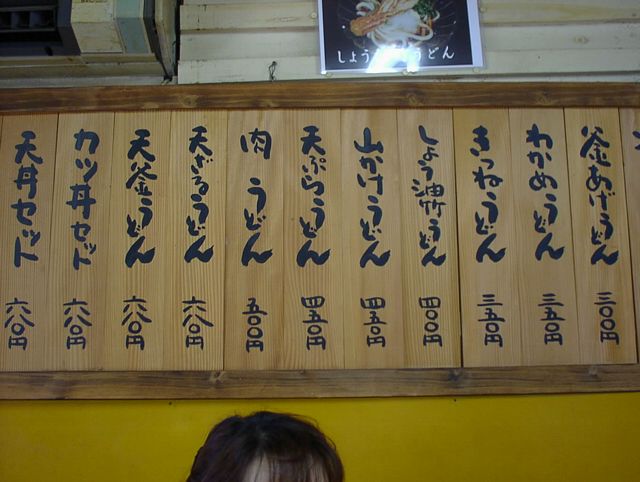 しょう うどん
釜あげうどん 三〇〇円
わかめうどん 三五〇円
きつねうどん 三五〇円
しょう油竹うどん 四〇〇円
山かけうどん 四五〇円
天ぷらうどん 四五〇円
肉うどん 五〇〇円
天ざるうどん 六八〇円
天釜うどん 六八〇円
カツ丼セット 六八〇円
天丼セット 六八〇円